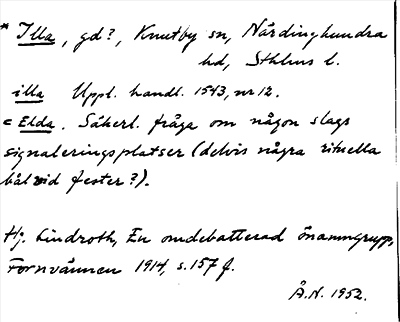 * Illa, gd?, Knutby sn, Närdinghundra
hd, Sthlms l.
illa Uppl. handl. 1543, nr 12.
< Elda. Säkerl. fråga om någon slags
signaleringsplatser (delvis några rituella
bål vid fester?).
Hj. Lindroth, En omdebatterad önamngrupp,
Fornvännen 1914, s. 157 f.
Å.N. 1952.